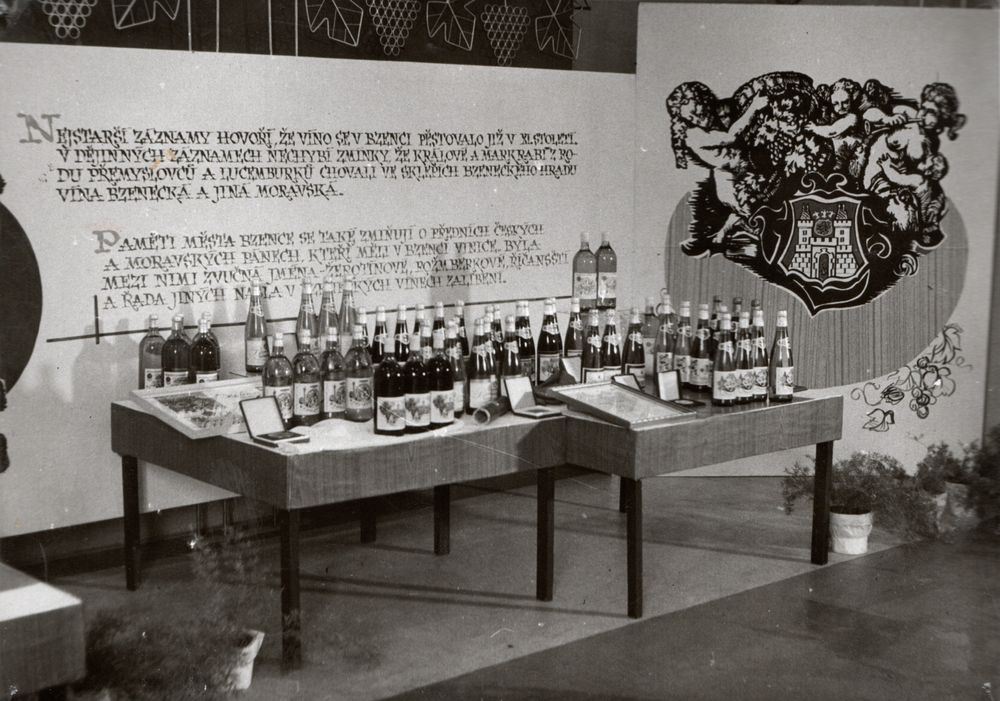 NEJSTARŠÍ ZÁZNAMY HOVOŘÍ, ŽE VÍNO SE V BZENCI PĚSTOVALO JIŽ V XI. STOLETÍ.
V DĚJINNÝCH ZÁZNAMECH NECHYBÍ ZMÍNKY, ŽE KRÁLOVÉ A MARKRABÍ Z RO-
DU PŘEMYSLOVCŮ A LUCEMBURKŮ CHOVALI VE SKLEPÍCH BZENECKÉHO HRADU
VÍNA BZENECKÁ A JINÁ MORAVSKÁ.
PAMĚTI MĚSTA BZENCE SE TAKÉ ZMIŇUJÍ O PŘEDNÍCH ČESKÝCH
A MORAVSKÝCH PÁNECH, KTEŘÍ MĚLI V BZENCI VINICE. BYLA
MEZI NIMI ZVUČNÁ JMÉNA-ŽEROTÍNOVÉ, ROŽMBERKOVÉ, ŘÍČANŠTÍ
A ŘADA JINÝCH NAŠLA V VÍNECH ZALÍBENÍ.